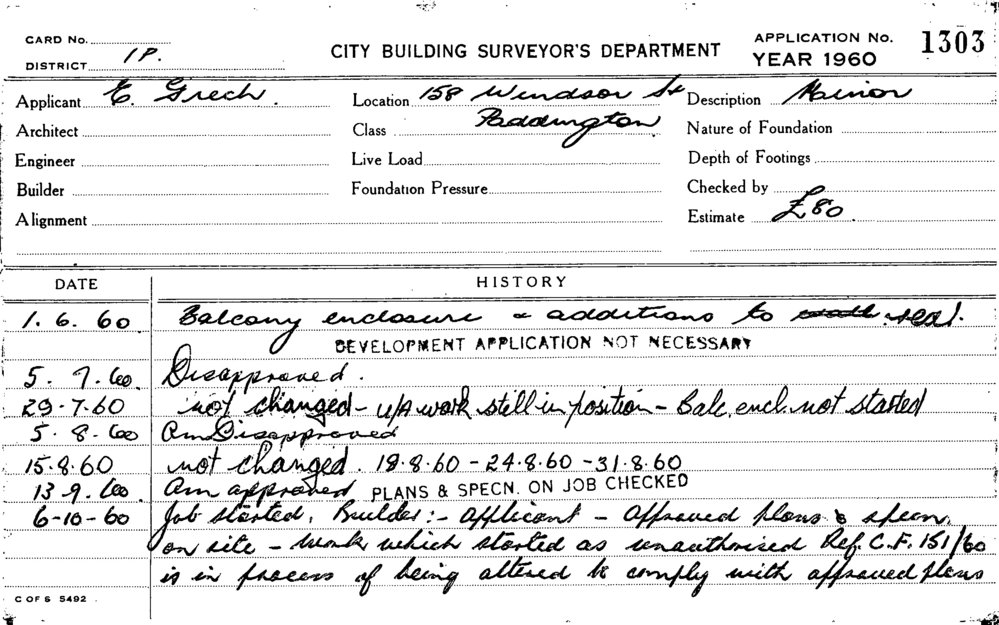 CARD No.
DISTRICT 1P.
CITY BUILDING SURVEYOR'S DEPARTMENT
APPLICATION No. 1303
YEAR 1960
Applicant E. Grech. Location 158 Windsor St Description Minor
Architect Class Paddington Nature of Foundation
Engineer Live Load Depth of Footings
Builder Foundation Pressure Checked by
Alignment Estimate £80.
DATE HISTORY
1. 6. 60 Balcony enclosure & additions to rear.
DEVELOPMENT APPLICATION NOT NECESSARY
5. 7. 60. Disapproved.
29-7-60 not changed - u/A work still in position - Balc. encl. not started
5. 8. 60 Am Disapproved
15.8.60 not changed. 18.8.60 - 24.8.60 - 31.8.60
13 9. 60. Am approved PLANS & SPECN. ON JOB CHECKED
6-10-60 Job started, Builder:- applicant - Approved plans & specn.
on site - work which started as unauthorised Ref. C.F. 151/60
is in process of being altered to comply with approved plans
C OF S 5492